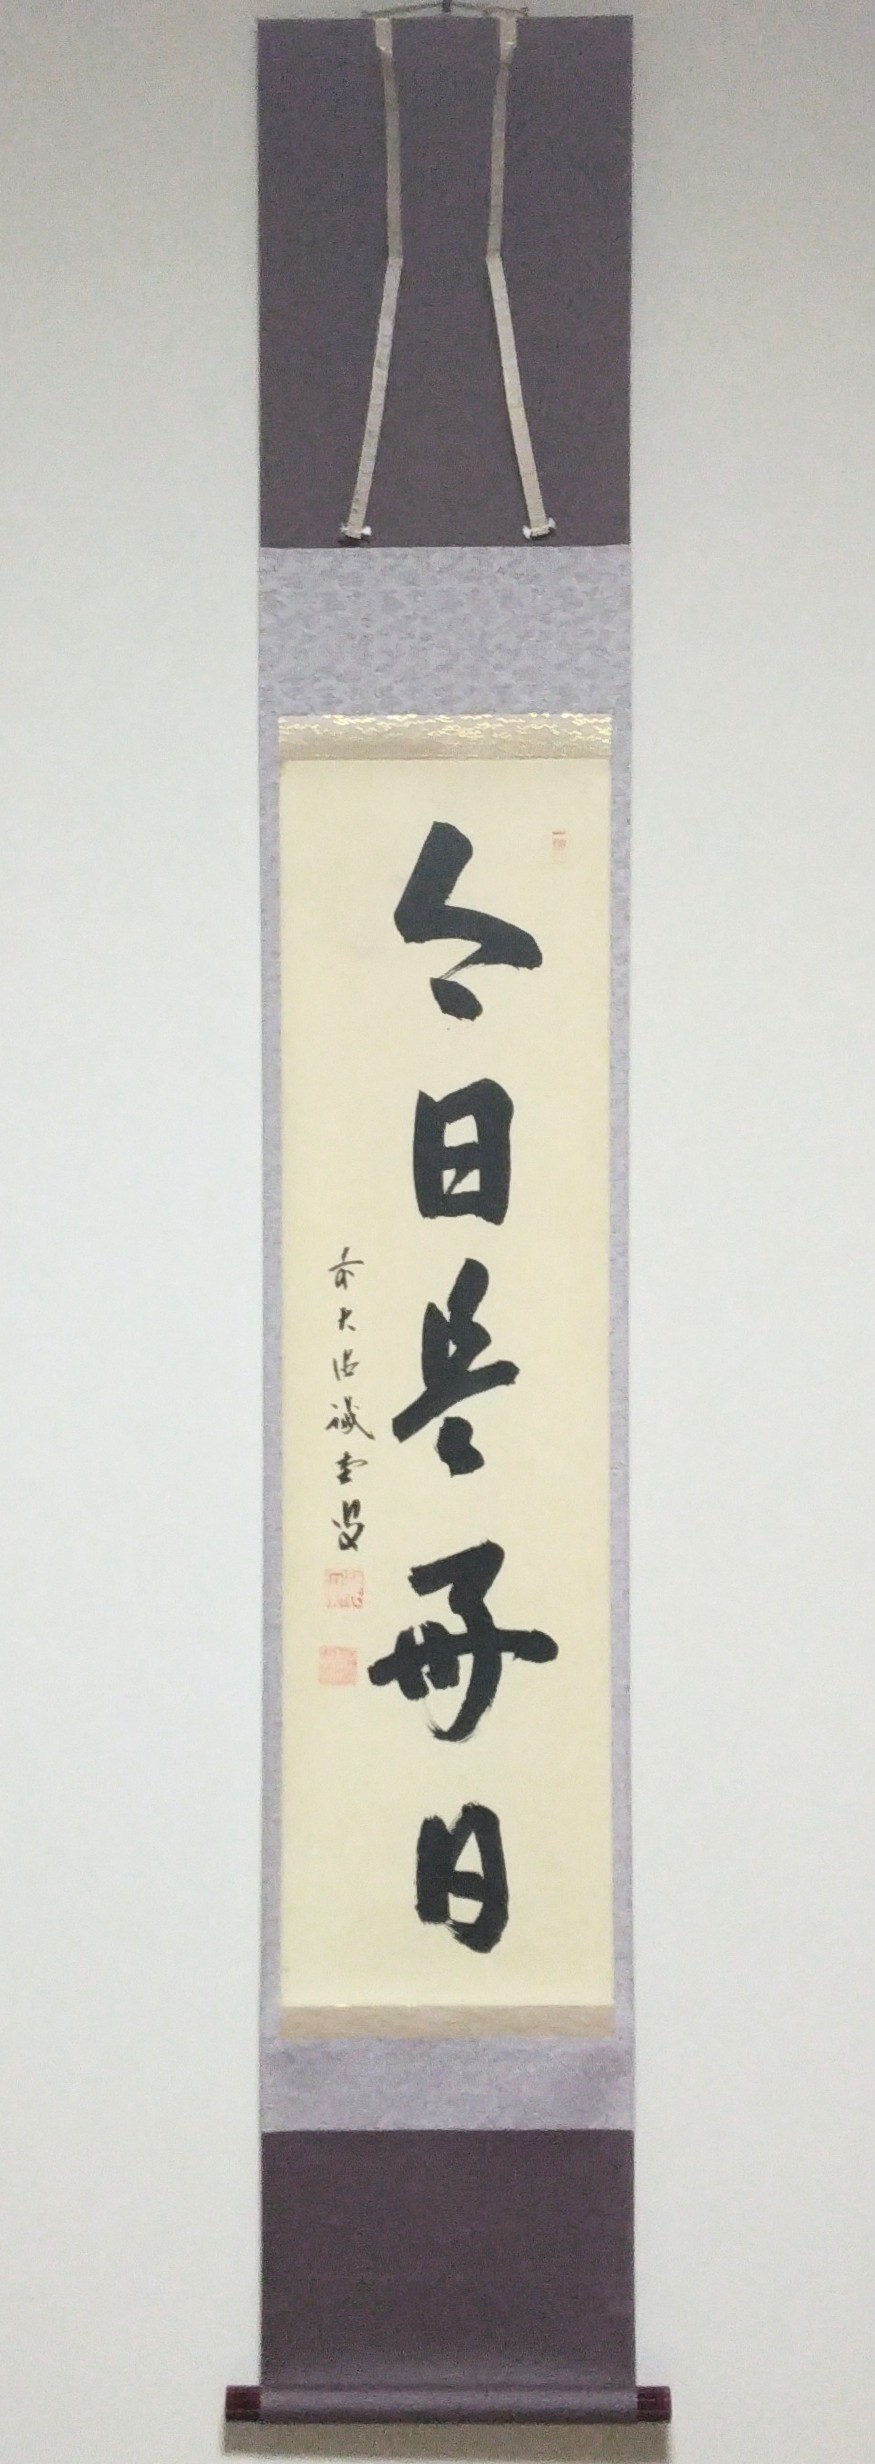 今日是好日
前大徳誡堂書